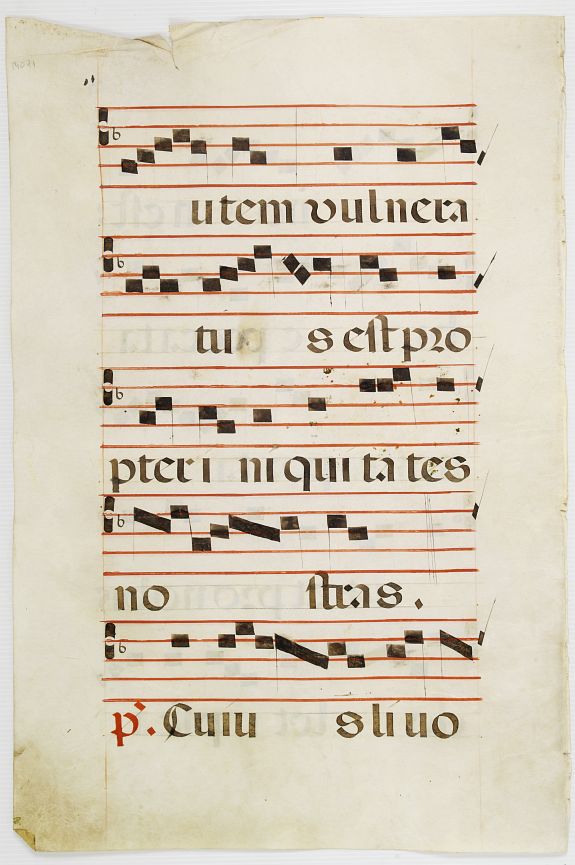 utem vulnera
tu s est pro
pter i ni qui ta tes
no stras.
p. Cuiu s li uo